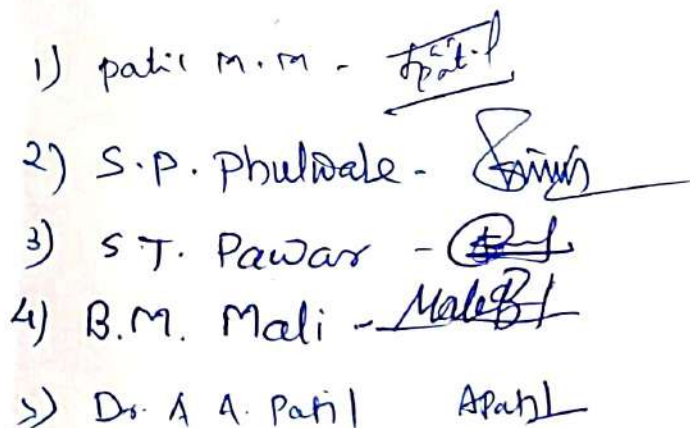 1) patil m.m -
2) S.P. Phulwale -
3) S T. Pawar -
4) B.M. Mali -
5) Dr. A A. Patil APatil